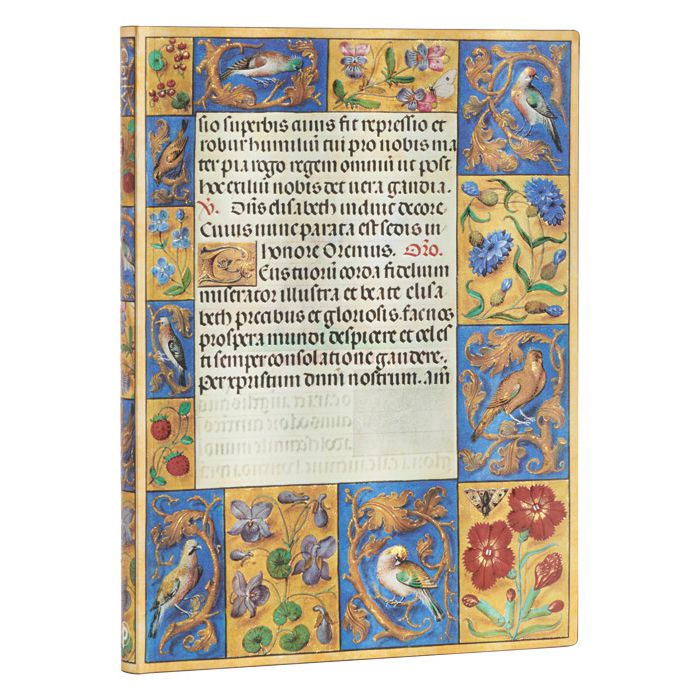 sio superbis cuius fit repressio et
robur humiliū tui pro nobis ma
ter pia rogo regem omniū ut post
hoc exiliū nobis det uera gaudia.
V. Dn̄s elisabeth induit decore.
Cuius nunc parata est sedis in
honore Oremus. Orō.
Deus tuorū corda fidelium
miserator illustra et beate elisa
beth precibus et gloriosis fac nos
prospera mundi despicere et celes
ti semper consolatione gaudere.
Per xpristum dnm nostrum. am̄